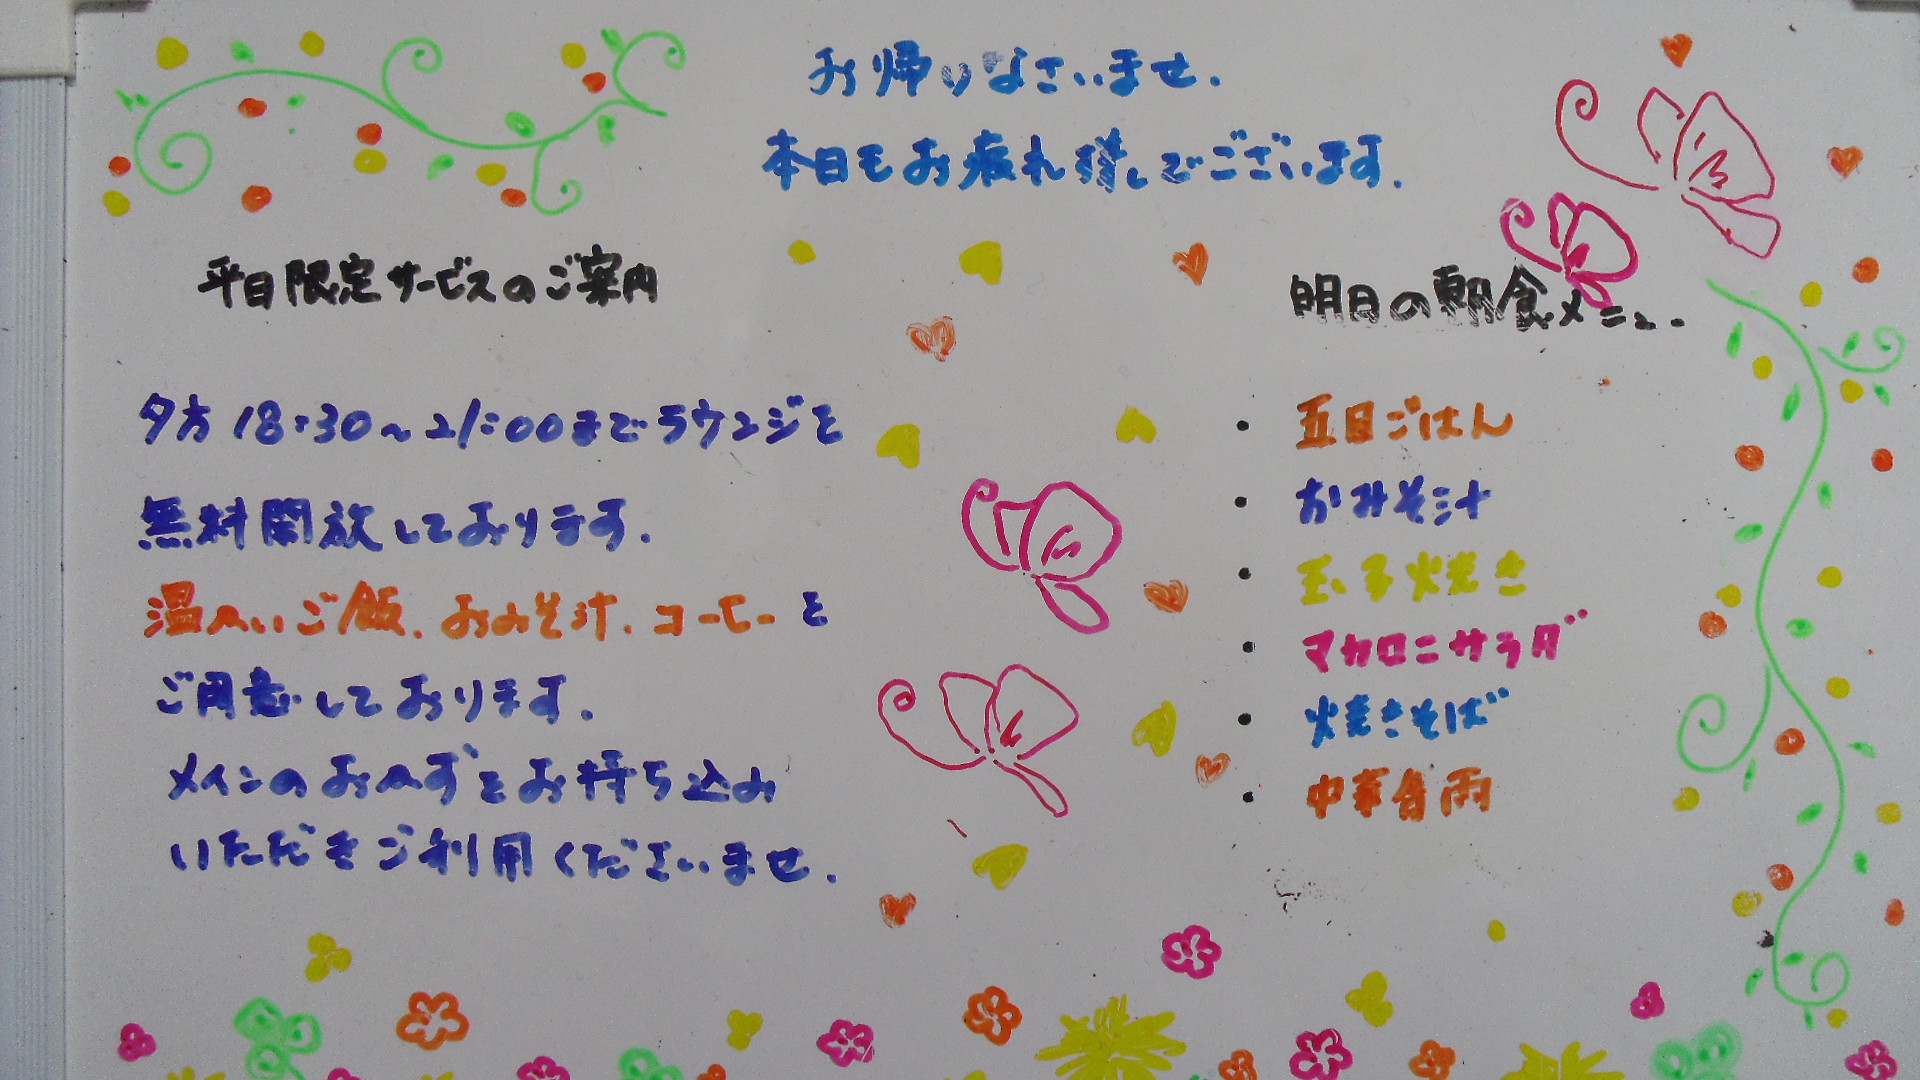 お帰りなさいませ.
本日もお疲れ様でございます.
平日限定サービスのご案内
夕方18:30~21:00までラウンジを
無料開放しております.
温かいご飯.おみそ汁.コーヒーを
ご用意しております.
メインのおかずをお持ち込み
いただきご利用くださいませ.
明日の朝食メニュー
・五目ごはん
・おみそ汁
・玉子焼き
・マカロニサラダ
・焼きそば
・中華春雨